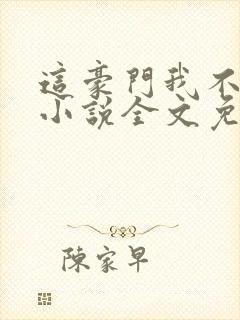 這豪門我不
小說全文免
陳家早